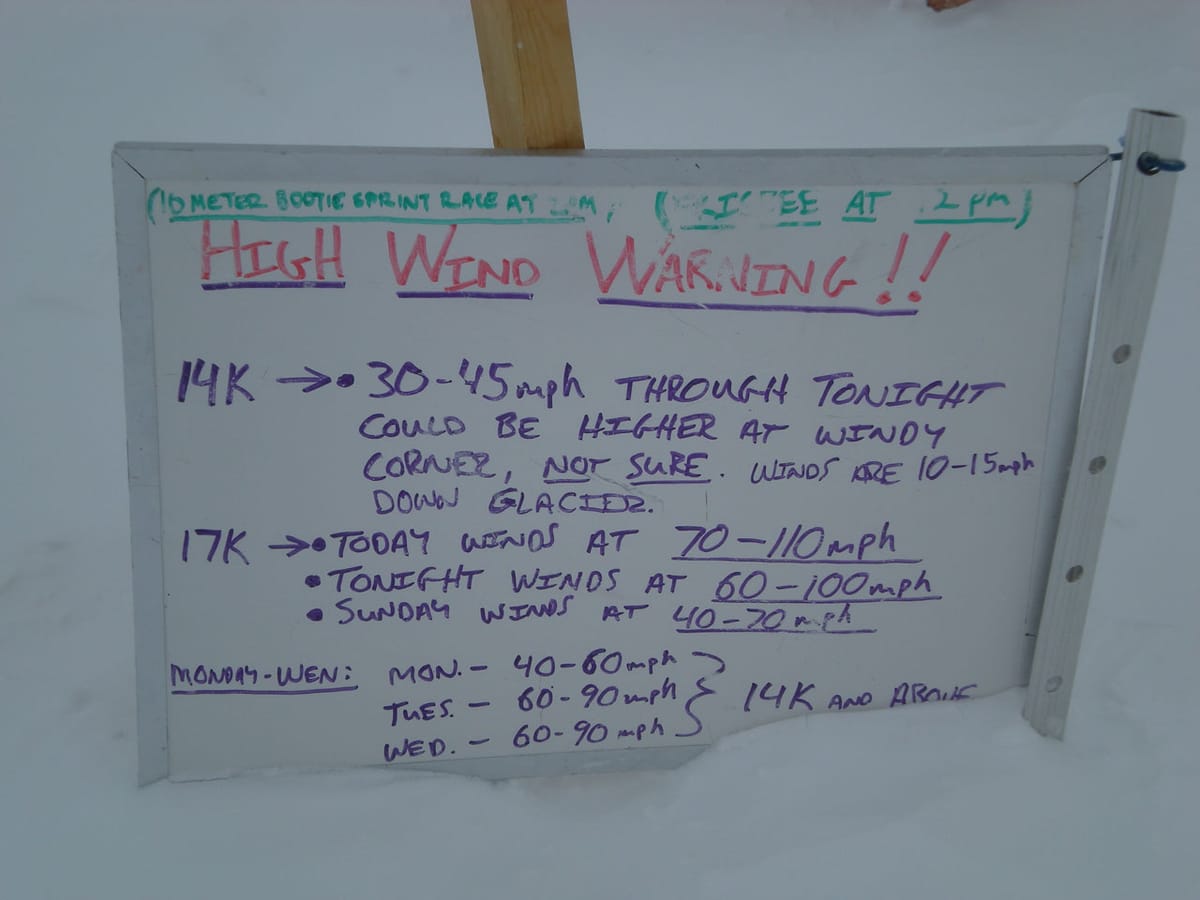 (10 METER BOOTIE SPRINT RACE AT PM, ( AT 2 pm)
HIGH WIND WARNING!!
14K →• 30-45mph THROUGH TONIGHT
COULD BE HIGHER AT WINDY
CORNER, NOT SURE. WINDS ARE 10-15mph
DOWN GLACIER.
17K →• TODAY WINDS AT 70-110mph
• TONIGHT WINDS AT 60-100mph
• SUNDAY WINDS AT 40-70mph
MONDAY-WEN: MON. - 40-60mph
TUES. - 60-90mph } 14K AND ABOVE
WED. - 60-90mph